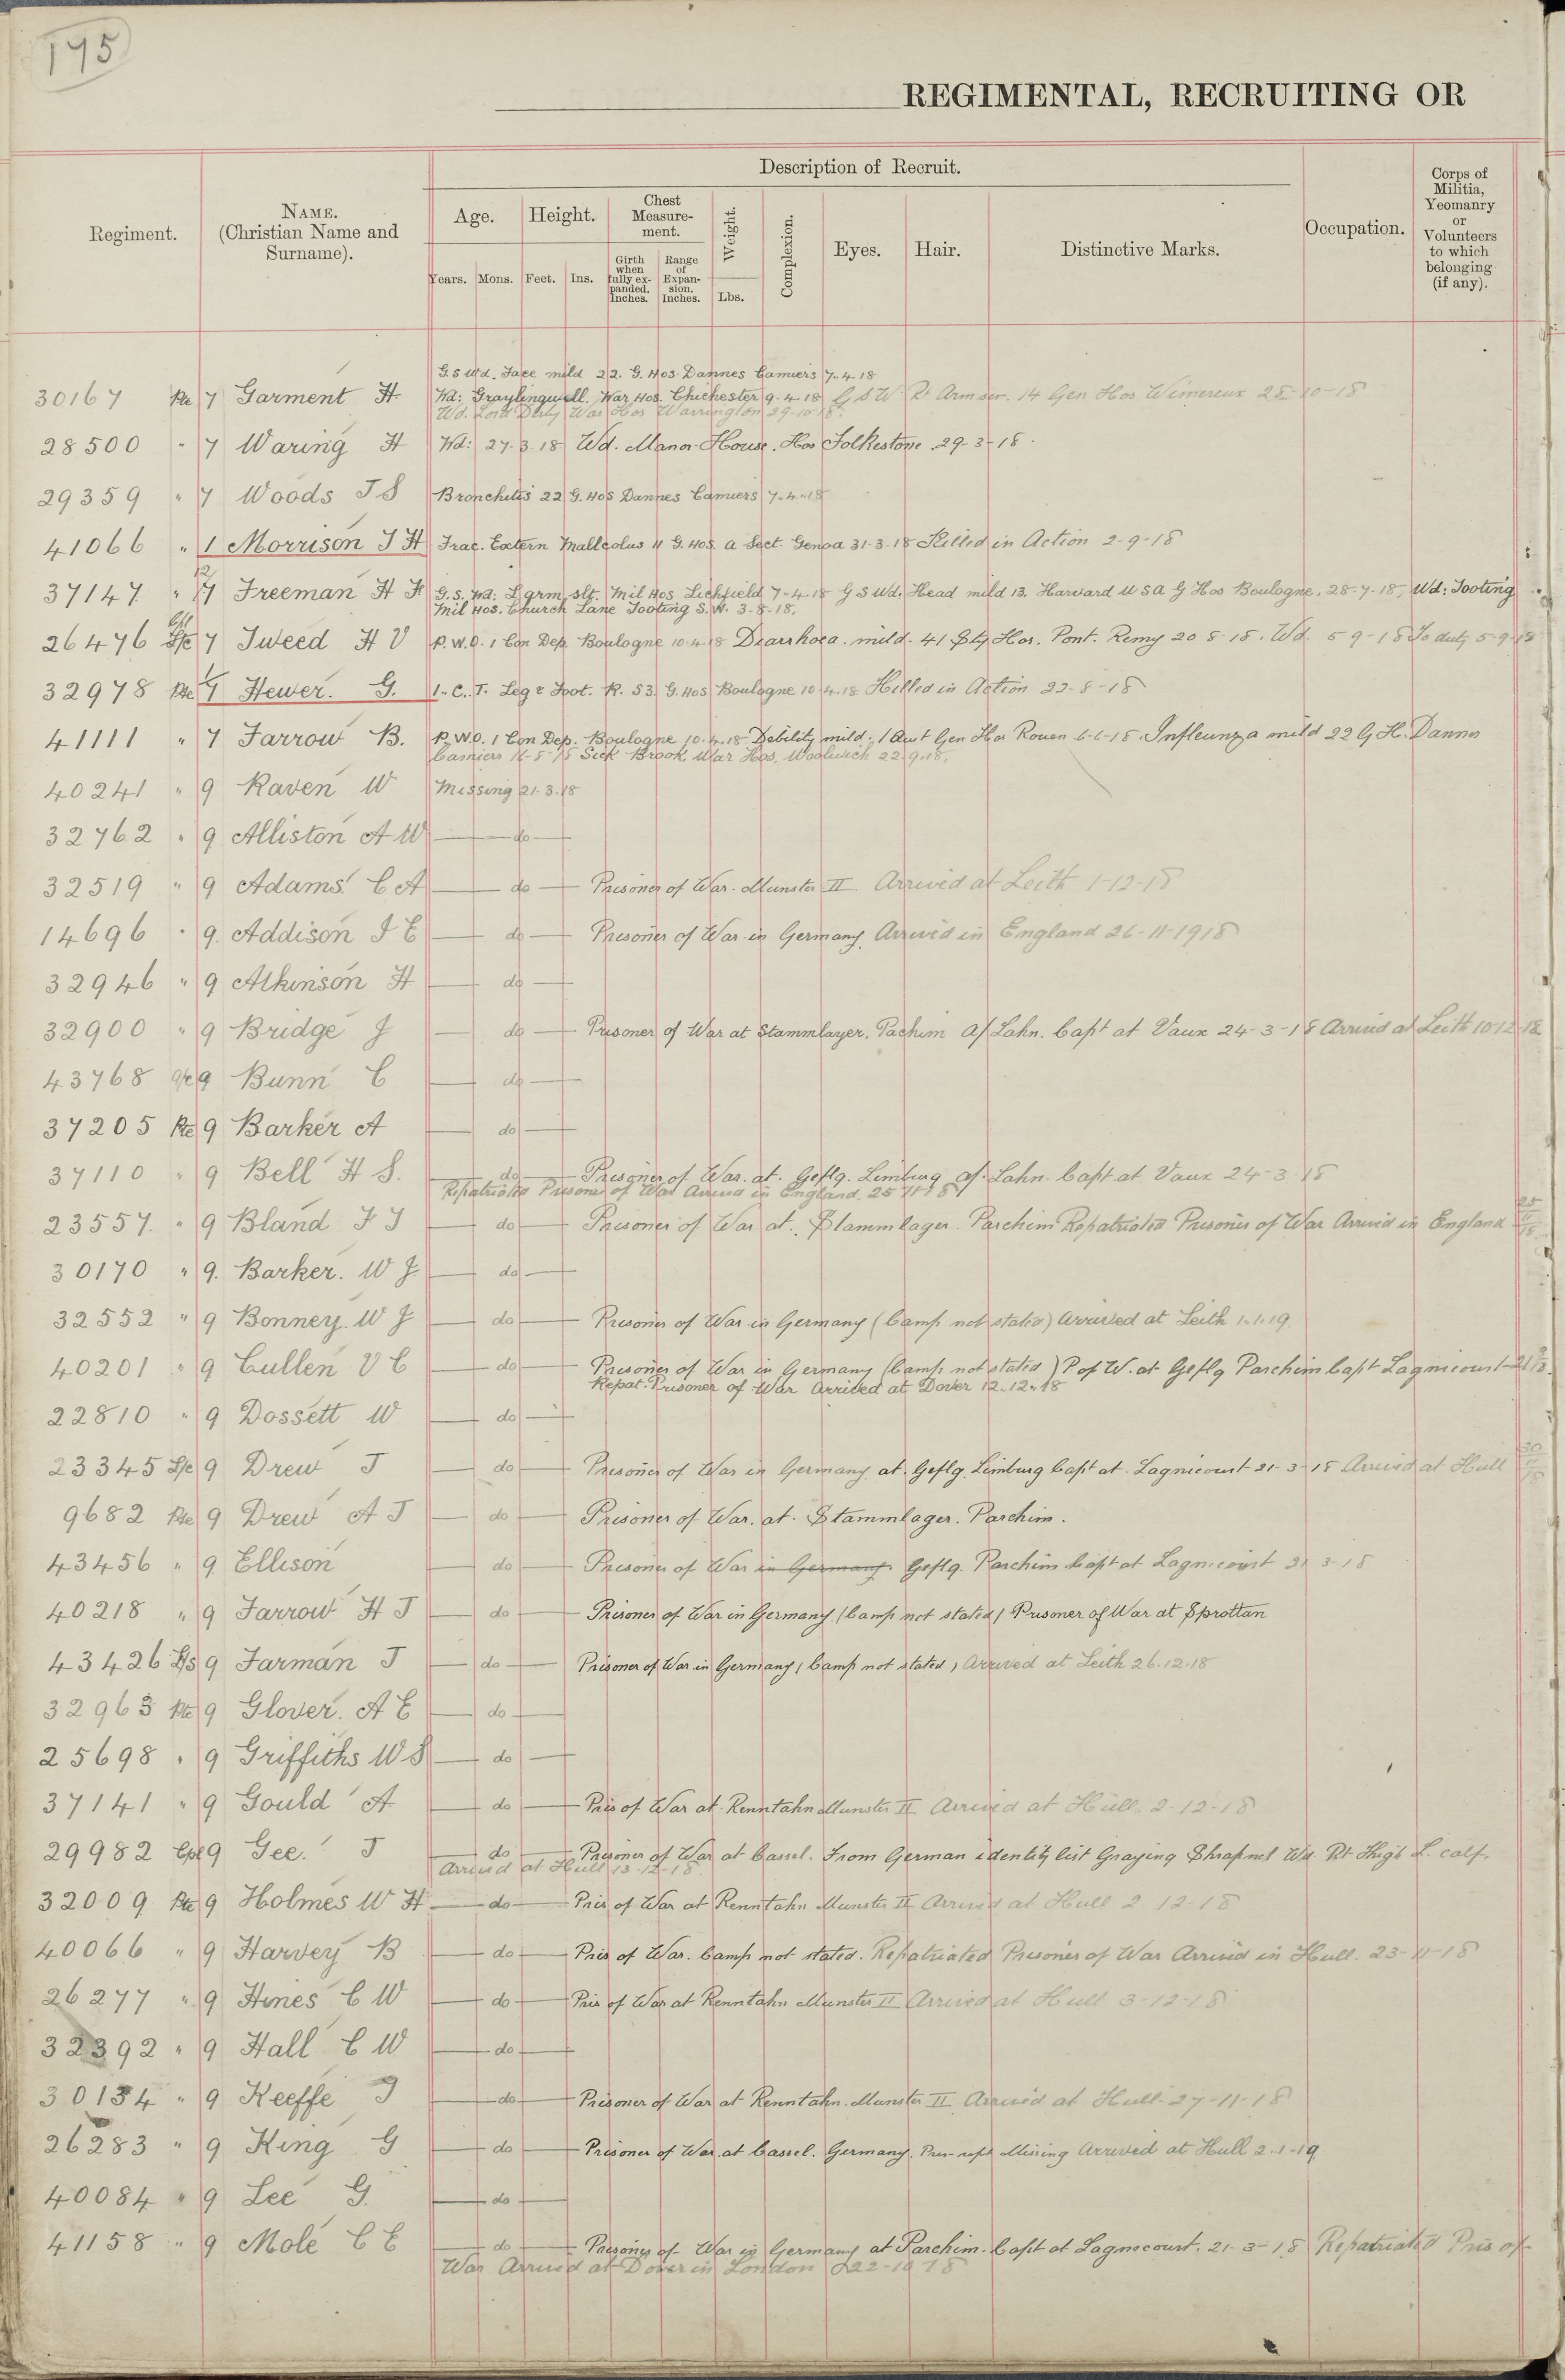 175
REGIMENTAL, RECRUITING OR
Description of Recruit.
Regiment.
NAME.
(Christian Name and
Surname).
Age.
Height.
Chest
Measure-
ment.
Weight.
Complexion.
Eyes.
Hair.
Distinctive Marks.
Occupation.
Corps of
Militia,
Yeomanry
or
Volunteers
to which
belonging
(if any).
Years.
Mons.
Feet.
Ins.
Girth
when
fully ex-
panded.
Inches.
Range
of
Expan-
sion.
Inches.
Lbs.
G.S Wd. Face mild 22. G. Hos. Dannes Camiers 7.4.18
30167 Pte 7 Garment H. Wd: Graylingwell War Hos. Chichester 9.4.18 G S W Rt Arm sev. 14 Gen Hos Wimereux 25-10-18
Wd. Lord Derby War Hos Warrington 29.10.18.
28500 " 7 Waring H Wd: 27.3.18 Wd. Manor House. Hos Folkestone 29-3-18.
29359 " 7 Woods J S Bronchitis 22 G. Hos Dannes Camiers 7.4.18
41066 " 1 Morrison J H Frac. Extern Malleolus 11 G. Hos. a Sect. Genoa 31-3-18 Killed in Action 2-9-18
12
37147 " 7 Freeman H F G.S. Wd: L. arm, slt. Mil Hos Lichfield 7-4-18 G S Wd. Head mild 13. Harvard U S A G Hos Boulogne. 28-7-18, Wd: Tooting
Mil Hos. Church Lane Tooting S.W. 3-8-18,
26476 L/c 7 Tweed H V P.W.O. 1 Con Dep. Boulogne 10.4.18 Diarrhoea. mild. 41 Sty Hos. Pont. Remy 20 8-18. Wd. 5-9-18 To duty 5-9-18
32978 Pte 7 Hewer. G. I.C.T. Leg & Foot. R. 53. G. Hos Boulogne 10.4.18 Killed in Action 22-8-18
41111 " 7 Farrow B. P.W.O. 1 Con Dep. Boulogne 10.4.18 Debility mild. 1 Aust Gen Hos Rouen 6-6-18. Infleunza mild 22 G H. Dannes
Camiers 16-8-18 Sick Brook War Hos. Woolwich 22.9.18.
40241 " 9 Raven W Missing 21.3.18
32762 " 9 Alliston A W do
32519 " 9 Adams C A do Prisoner of War. Munster II Arrived at Leith 1-12-18
14696 " 9. Addison J E do Prisoner of War in Germany. Arrived in England 26-11-1918
32946 " 9 Atkinson H do
32900 " 9 Bridge J do Prisoner of War at Stammlayer. Pachim a/ Lahn. Capt at Vaux 24-3-18 Arrived at Leith 10-12-18
43768 9 Bunn C do
37205 Pte 9 Barker A do
37110 " 9 Bell H S. do Prisoner of War. at. Geflg. Limburg a/. Lahn. Capt at Vaux 24-3-18
Repatriated Prisoner of War Arrived in England. 25 11-18
23557. " 9 Bland F J do Prisoner of War at. Stammlager. Parchim Repatriated Prisoner of War Arrived in England 25 11 18
30170 " 9. Barker. W J do
32552 " 9 Bonney. W J do Prisoner of War in Germany (Camp not stated) Arrived at Leith 1.1.19.
40201 " 9 Cullen V C do Prisoner of War in Germany (Camp not stated) P of W. at Geflg Parchim Capt Lagnicourt 21 3 18.
Repat. Prisoner of War Arrived at Dover 12.12.18
22810 " 9 Dossett W do
23345 L/c 9 Drew J do Prisoner of War in Germany at. Geflg. Limburg Capt at. Lagnicourt 21-3-18 Arrived at Hull 30 11 18
9682 Pte 9 Drew A J do Prisoner of War. at. Stammlager. Parchim.
43456 " 9 Ellison do Prisoner of War in Germany. Geflg. Parchim Capt at Lagnicourt 21 3-18
40218 " 9 Farrow H J do Prisoner of War in Germany (Camp not stated) Prisoner of War at Sprottan
43426 L/S 9 Farman J do Prisoner of War in Germany (Camp not stated) Arrived at Leith 26.12.18
32963 Pte 9 Glover. A E do
25698 " 9 Griffiths W S do
37141 " 9 Gould A do Pris of War at Renntahn Munster II Arrived at Hull 2-12-18
29982 Cpl 9 Gee. J do Prisoner of War at Cassel. From German identity list Graying Shrapnel Wd. Rt Thigh L. calf.
Arrived at Hull 13-12-18.
32009 Pte 9 Holmes W H do Pris of War at Renntahn Munster II Arrived at Hull 2 12-18
40066 " 9 Harvey B do Pris of War. Camp not stated. Repatriated Prisoner of War Arrived in Hull. 23-11-18
26277 " 9 Hines C W do Pris of War at Renntahn Munster II Arrived at Hull 3-12-18
32392 " 9 Hall C W do
30134 " 9 Keeffe J do Prisoner of War at Renntahn. Munster II Arrived at Hull 27-11-18
26283 " 9 King G do Prisoner of War. at Cassel. Germany. Prev rept Missing Arrived at Hull 2.1-19
40084 " 9 Lee G. do
41158 " 9 Mole C E do Prisoner of War in Germany at Parchim. Capt at Lagnocourt. 21-3-18 Repatriated Pris of
War Arrived at Dover in London 22-10 18